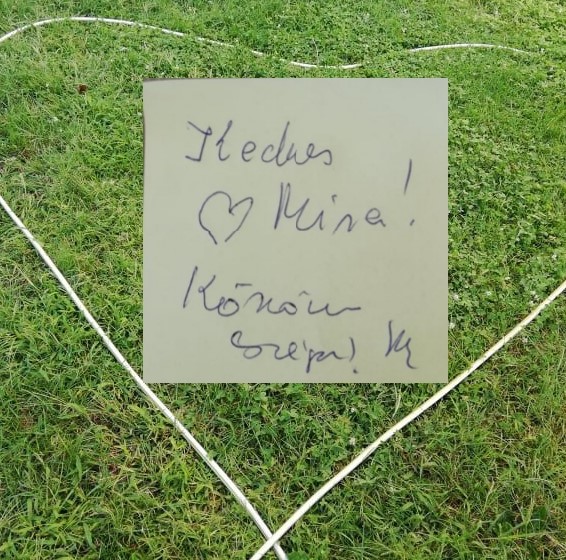 Kedves
♡ Mira!
Köszönöm
szépen!